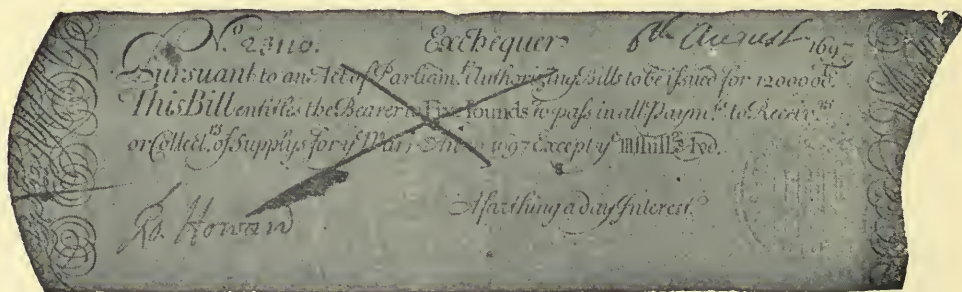 No. 23110. Exchequer 6th August 1697
Pursuant to an Act of Parliamt. Authorizing Bills to be issued for 1200000l.
This Bill entitles the Bearer to Five Pounds to pass in all Paymts. to Receivrs.
or Collectrs. of Supplys for ye Warr Anno 1697 Except ye
A farthing a day Interest.
Ro. Howard